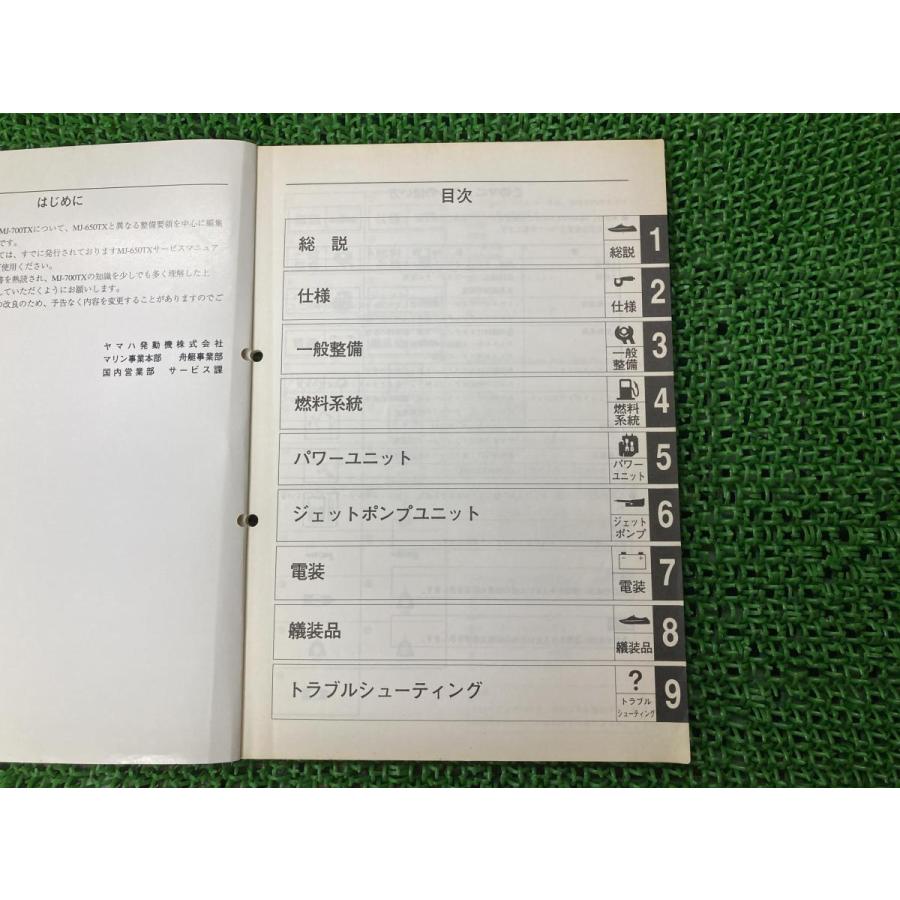 はじめに
MJ-700TXについて、MJ-650TXと異なる整備要領を中心に編集
です。
ては、すでに発行されておりますMJ-650TXサービスマニュア
使用ください。
を熟読され、MJ-700TXの知識を少しでも多く理解した上
していただくようにお願いします。
改良のため、予告なく内容を変更することがありますのでご
ヤマハ発動機株式会社
マリン事業本部 舟艇事業部
国内営業部 サービス課
目次
総 説
総説
1
仕様
仕様
2
一般整備
一般
整備
3
燃料系統
燃料
系統
4
パワーユニット
パワー
ユニット
5
ジェットポンプユニット
ジェット
ポンプ
6
電装
電装
7
艤装品
艤装品
8
トラブルシューティング
?
トラブル
シューティング
9